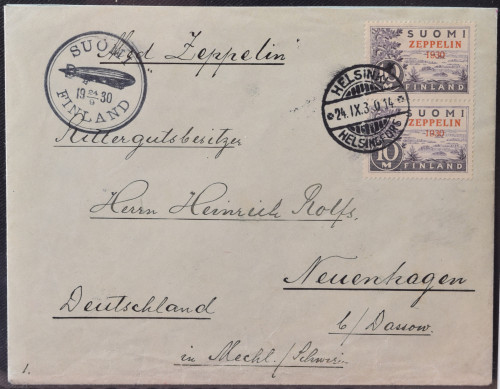 SUOMI
19 24/9 30
FINLAND
Myd Zeppelin"
SUOMI
ZEPPELIN
1930
10 M
FINLAND
HELSINKI
24.IX.30.14
HELSINGFORS
SUOMI
ZEPPELIN
1930
10 M
FINLAND
Rittergutsbesitzer
Herrn Heinrich Rolfs.
Neuenhagen
Deutschland
b/ Dassow.
in Meckl./Schwerin
1.